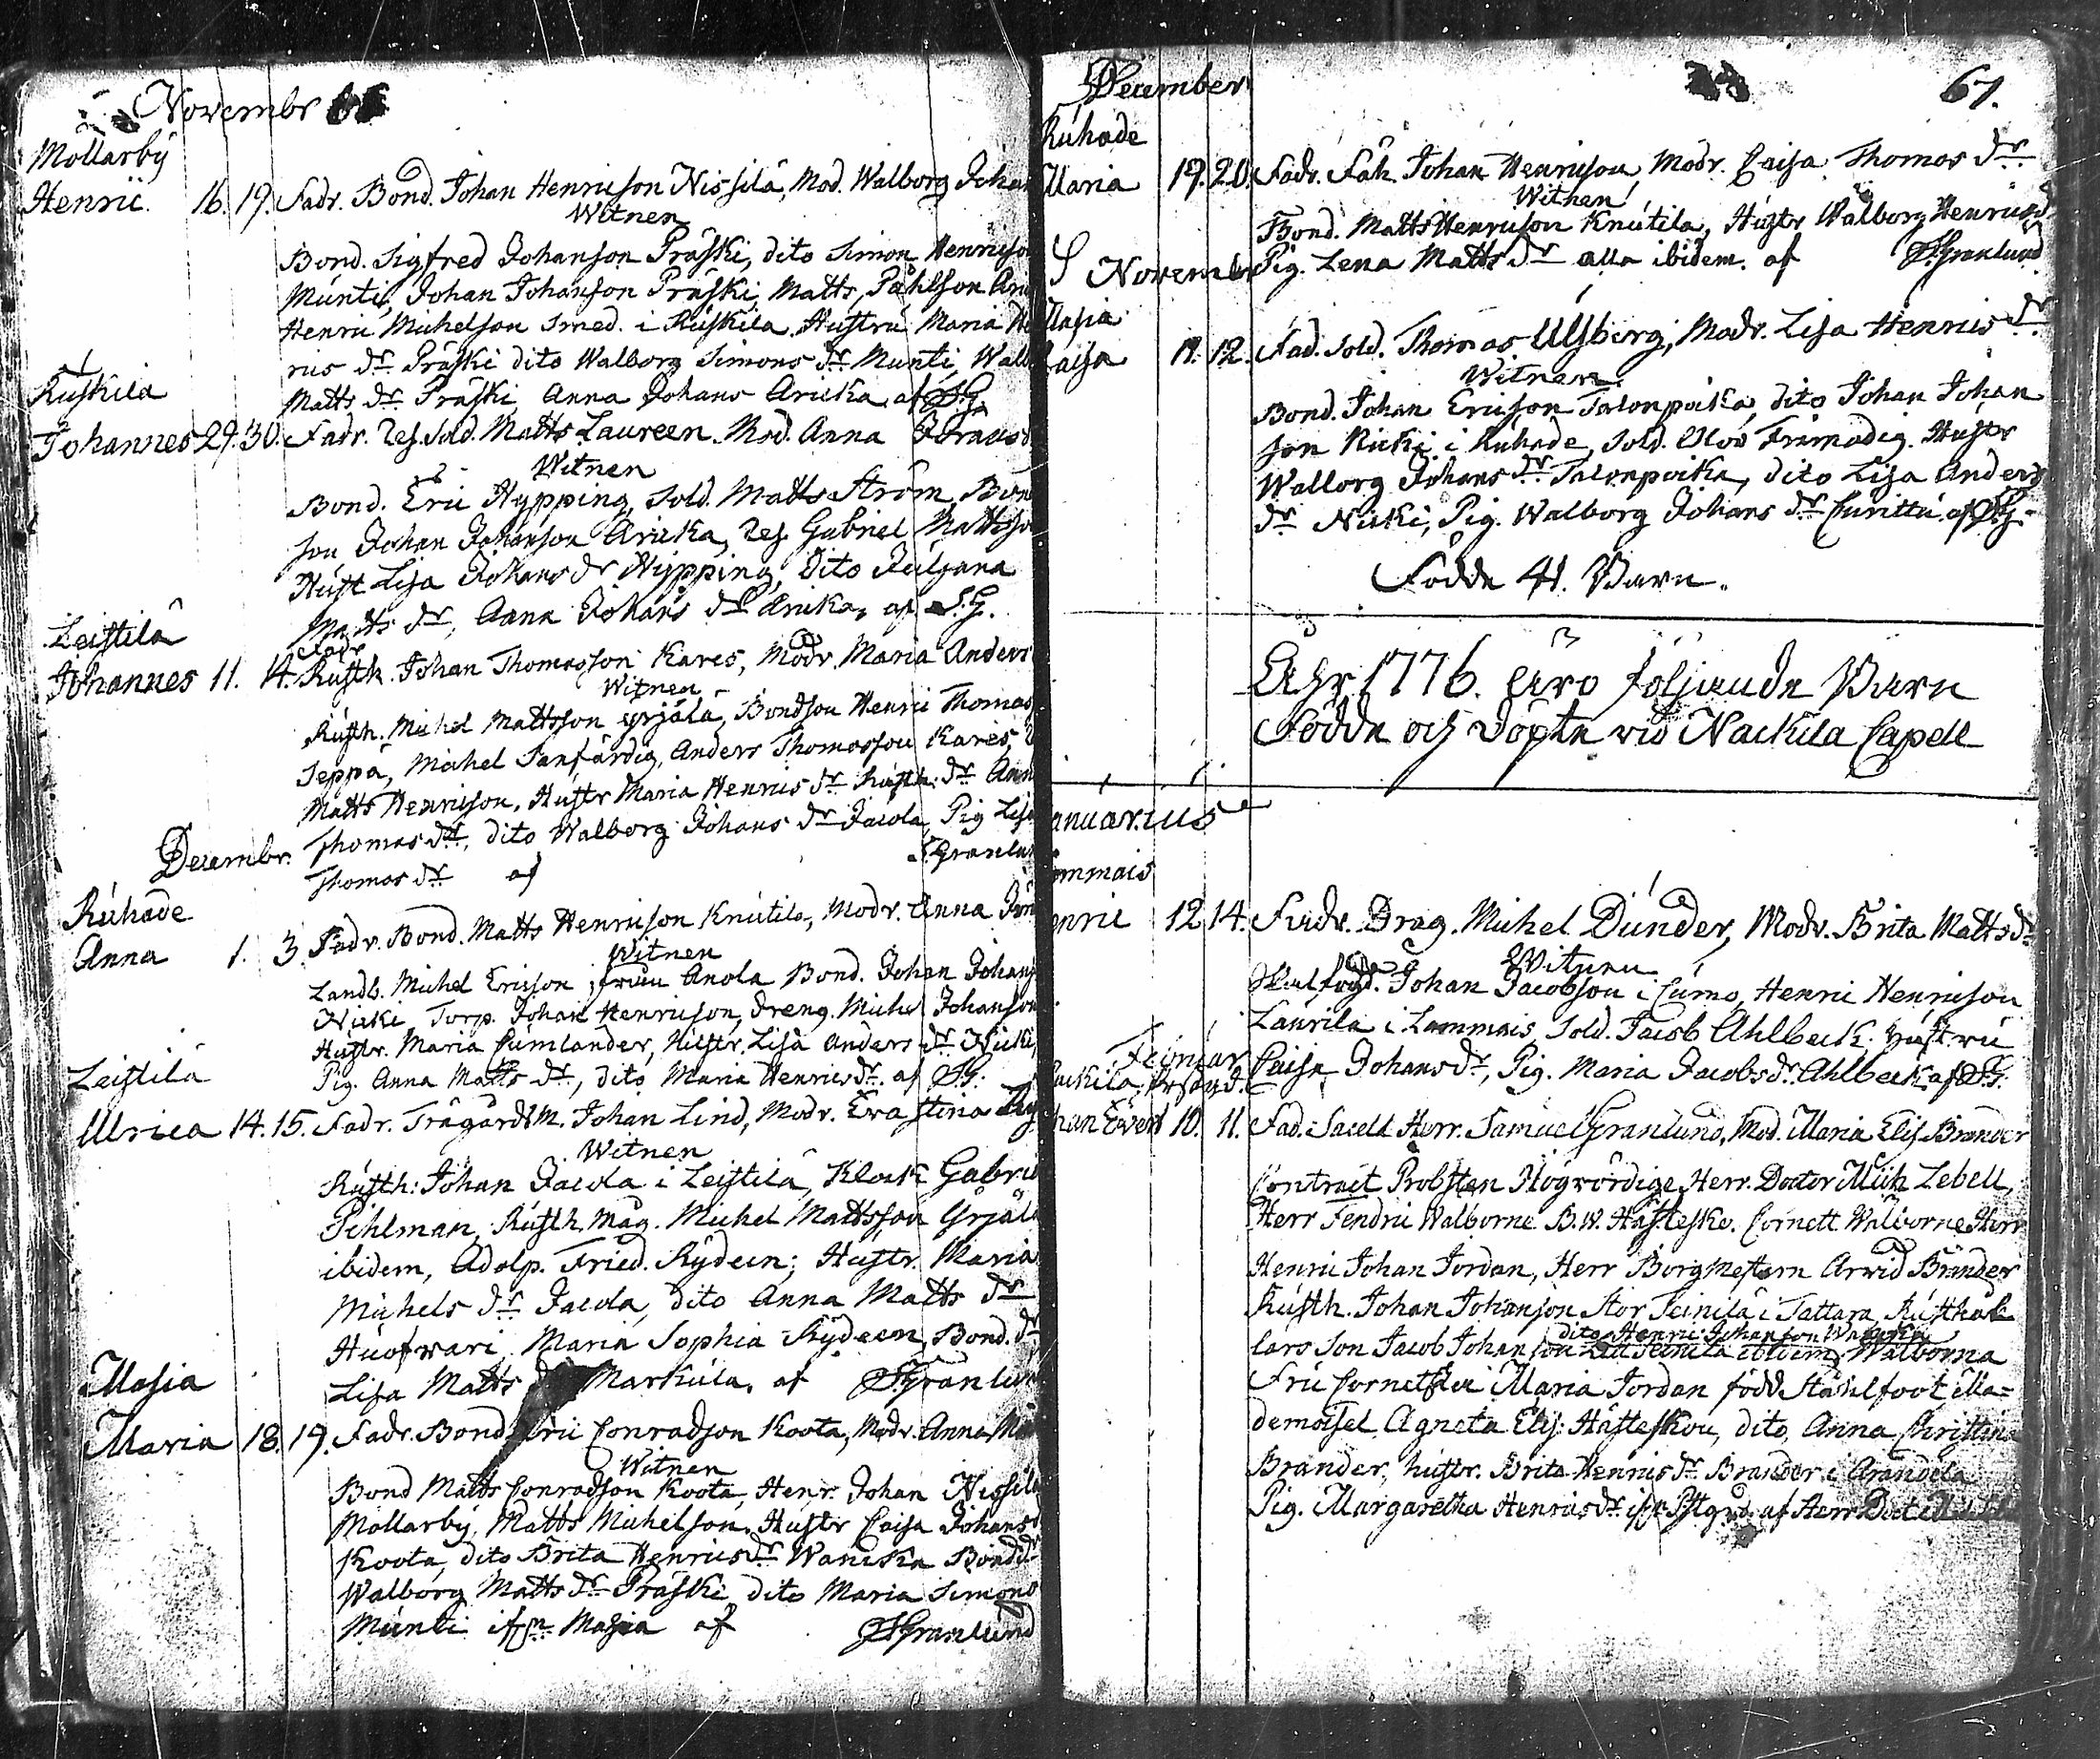 Novembr
Mollarby
Henric 16. 19. Fadr. Bond. Johan Henricson Nissilä, Mod. Walborg Johan
Witnen
Bond. Sigfred Johanson Präski, dito Simon Henricson
Munti, Johan Johanson Präski, Matts Påhlson
Henric Michelson Smed. i Ruskila, Hustru Maria
rics dr Präski dito Walborg Simons dr Munti, Walb
Matts dr Präski Anna Johans Aricka af S.G.
Ruskila
Johannes 29. 30. Fadr. Sold. Matts Laureen. Mod. Anna
Witnen
Bond. Eric Hypping, Sold. Matts Ström,
son Johan Johanson Aricka, Gabriel Mattsson
Hust Lisa Johans dr Hypping, dito Juliana
Matts dr, Anna Johans dr Aricka, af S.G.
Leistilä
Fadr
Johannes 11. 14. Rusth. Johan Thomasson Kares, Modr. Maria Anders
Witnen
Rusth. Michel Mattsson Yrjälä, Bondson Henric Thomas
Seppä, Michel Sanfärdig, Anders Thomasson Kares,
Matts Henricson, Hustr Maria Henrics dr Rusth. dr Ann
Thomas dr, dito Walborg Johans dr Jacola, Pig Lisa
Decembr. Thomas dr af S. Granlun
Ruhade
Anna 1. 3. Fadr. Bond. Matts Henricson Knutila, Modr. Anna
Witnen
Landb. Michel Ericson från Anola Bond. Johan Johans
Nicki, Torp. Johan Henricson, Dreng. Michel Johanson
Hustr. Maria Cumlander, Hustr. Lisa Anders dr Nicki,
Pig. Anna Matts dr, dito Maria Henrics dr. af S.G.
Leistilä
Ulrica 14. 15. Fadr. Trägårdsm. Johan Lind, Modr. Eva Stina
Witnen
Rusth: Johan Jacola i Leistilä, Klock Gabriel
Pihlman, Rusth. Måg. Michel Mattsson Yrjälä
ibidem, Adolp. Fried. Rydeen; Hustr. Maria
Michels dr Jacola, dito Anna Matts dr
Huofwari, Maria Sophia Rydeen, Bond. dr
Lisa Matts dr Markula, af S. Granlun
Masia
Maria 18. 19. Fadr. Bond Eric Conradson Koota, Modr. Anna
Witnen
Bond Matts Conradson Koota, Henr. Johan Nissilä
Mollarby, Matts Michelson, Hustr Caisa Johans
Koota, dito Brita Henrics dr Waniska Bond dr
Walborg Matts dr Präski, dito Maria Simons
Munti ifrn Masia af S Granlund
December 67.
Ruhade
Maria 19. 20. Fadr. Johan Henricson, Modr. Caisa Thomas dr.
Witnen
Bond. Matts Henricson Knutila, Hustr Walborg Henricsd
Pig. Lena Matts dr alla ibidem. af S. Granlund
Novembr
Masia
Caisa 11. 12. Fad. Sold. Thomas Ulsberg, Modr. Lisa Henrics dr
Witnen
Bond. Johan Ericson Talonpoika, dito Johan Johan
son Nicki i Ruhade, Sold. Frimodig. Hustr
Walborg Johans dr Talonpoika, dito Lisa Anders
dr Nicki, Pig. Walborg Johans dr Curittu. af S.G.
Födde 41. Barn.
Åhr 1776. äro följande Barn
Födde och döpte vid Nackila Capell
anuarius
ammais
enric 12 14. Fadr. Drag. Michel Dunder, Modr. Brita Mattsdr
Witnen
Johan Jacobson i Cumo, Henric Henricson
Laurila i Lammais, Sold. Jacob Ahlbeck. hustru
Caisa Johans dr, Pig. Maria Jacobs dr. Ahlbeck af S.G.
Februar
Nackila Prstgd.
han Evert 10. 11. Fad. Sacell. Herr. Samuel Granlund, Mod. Maria Elis Brander
Contract Probsten Högvördige Herr. Doctor Mich Lebell,
Herr Fendric Walborne B.W. Hästesko. Cornett Walborne Herr
Henric Johan Jordan, Herr Borgmestarn Arvid Brander
Rusth. Johan Johanson Stor Peinilä i Tattara, Rusthål
dito Henric Johanson
lars Son Jacob Johanson Peinilä ibidem; Walborna
Fru Cornetskan Maria Jordan född Stählfoot, Ma=
demoisel Agneta Elis: Hästeskou, dito, Anna Christina
Brander, hustr. Brita Henrics dr. Brander i Arandila
Pig. Margaretha Henricsdr. ifr Pstgrd. af Herr Doct